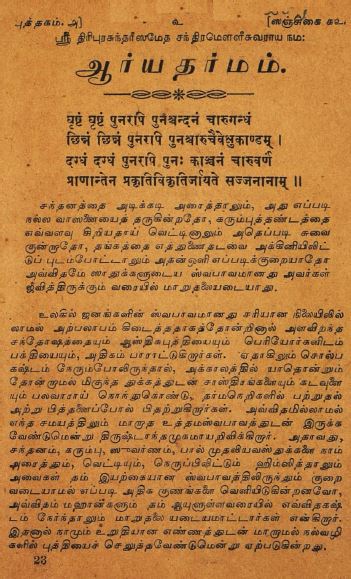 புத்தகம். அ]
உ
[ஸஞ்சிகை
ஸ்ரீ திரிபுரசுந்தரீஸமேத சந்திரமௌளீசுவராய நம:
ஆர்யதர்மம்.
घृष्टं घृष्टं पुनरपि पुनश्चन्दनं चारुगन्धं
छिन्नं छिन्नं पुनरपि पुनश्चारुचैवेक्षुकाण्डम् ।
दग्धं दग्धं पुनरपि पुनः काञ्चनं चारुवर्णं
प्राणान्तेन प्रकृतिविकृतिर्जायते सज्जनानाम् ॥
சந்தனத்தை அடிக்கடி அரைத்தாலும், அது எப்படி
நல்ல வாஸனையைத் தருகின்றதோ, கரும்புத்தண்டத்தை
எவ்வளவு கிறியதாய் வெட்டினாலும் அதெப்படி சுவை
குன்றாதோ, தங்கத்தை எத்துணைதடவை அக்கினியிலிட்
டுப் புடம்போட்டாலும் அதன் ஒளி எப்படிக்குறையாதோ
அவ்விதமே ஸாதுக்களுடைய ஸ்வபாவமானது அவர்கள்
ஜீவித்திருக்கும் வரையில் மாறுதலையடையாது.
உலகில் ஜனங்களின் ஸ்வபாவமானது சரியான நிலையிலில்
லாமல் அற்பலாபம் கிடைத்ததாகத்தோன்றினால் அளவிறந்த
சந்தோஷத்தையும் ஆஸ்திகபுத்தியையும் பெரியோர்களிடம்
பக்தியையும், அதிகம் பாராட்டுகிறார்கள். ஏதாகிலும் சொல்ப
கஷ்டம் நேரும்போலிருந்தால், அக்காலத்தில் யாதொன்றும்
தோன்றாமல் மிகுந்த துக்கத்துடன் சாஸ்திரங்களையும் கடவுளை
யும் பலவாறாய் நொந்துகொண்டு, தர்மநெறிகளில் பற்றுதல்
அற்று பித்தனைப்போல் பிதற்றுகிறார்கள். அவ்விதமில்லாமல்
எந்த சமயத்திலும் மாறாத உத்தமஸ்வபாவத்துடன் இருக்க
வேண்டுமென்று திருஷ்டாந்தமூகமாயறிவிக்கிறார். அதாவது,
சந்தனம், கரும்பு, ஸுவர்ணம், பால் முதலியவஸ்துக்களை நாம்
அரைத்தும், வெட்டியும், நெருப்பிலிட்டும் ஹிம்ஸித்தாலும்
அவைகள் தம் இயற்கையான ஸ்வபாவத்திலிருந்தும் குறை
வடையாமல் எப்படி அதிக குணங்களை வெளியிடுகின்றனவோ,
அவ்விதம் மஹான்களும் தம் ஆயுளுள்ளவரையில் எவ்விதகஷ்
டம் நேர்ந்தாலும் மாறுதலை யடையமாட்டார்கள் என்கிறார்.
இதனால் நாமும் உறுதியான எண்ணத்துடன் மாறாமல் நல்வழி
களில் புத்தியைச் செலுத்தவேண்டுமென்று ஏற்படுகின்றது.
23